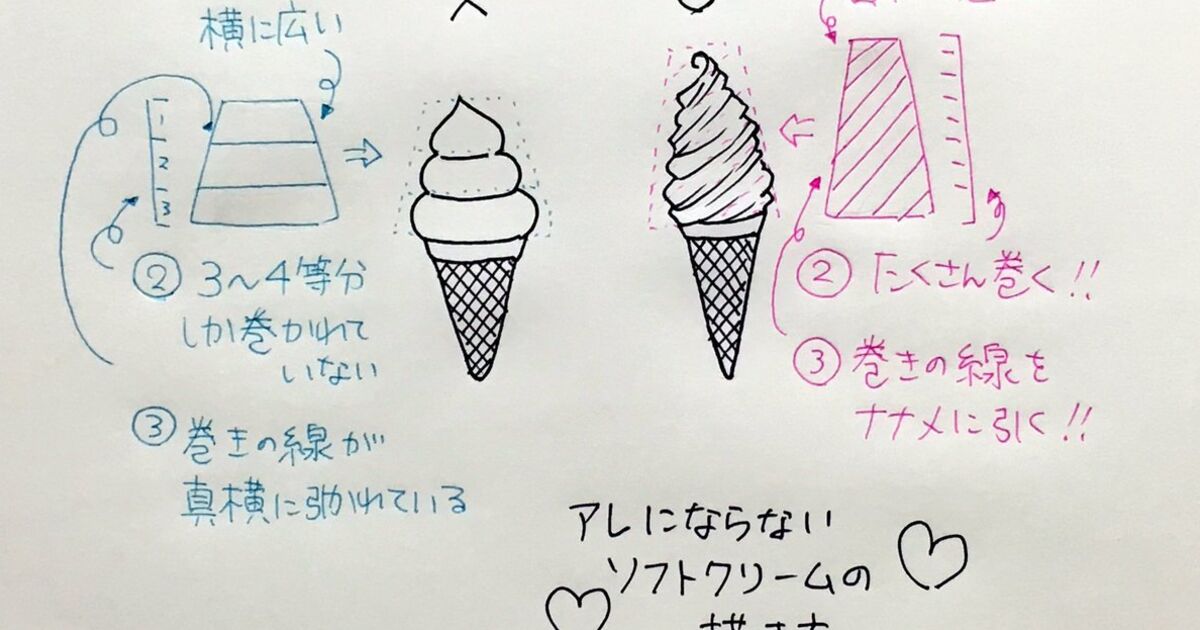 横に広い
1
2
3
② 3〜4等分
しか巻かれて
いない
③ 巻きの線が
真横に引かれている
② たくさん巻く!!
③ 巻きの線を
ナナメに引く!!
アレにならない
ソフトクリームの